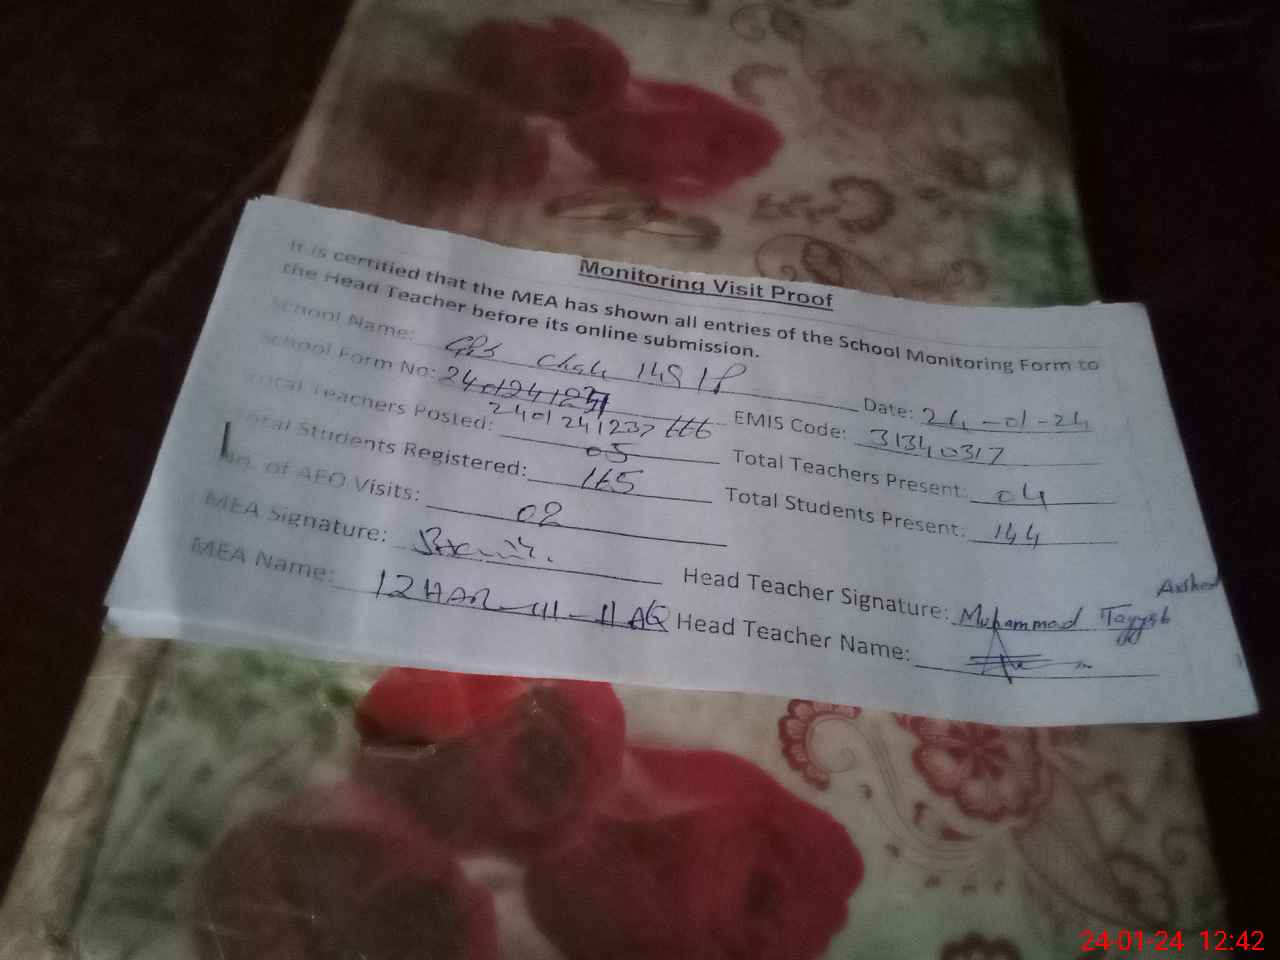 Monitoring Visit Proof
It is certified that the MEA has shown all entries of the School Monitoring Form to
the Head Teacher before its online submission.
School Name: GPS Chak 148 1P Date: 24-01-24
School Form No: EMIS Code: 31340317
2401241237
Total Teachers Posted: 05 Total Teachers Present: 04
Total Students Registered: 165 Total Students Present: 144
No. of AEO Visits: 02
MEA Signature: Head Teacher Signature: Muhammad Tayyab
MEA Name: IZHAR-UL-HAQ Head Teacher Name:
24-01-24 12:42